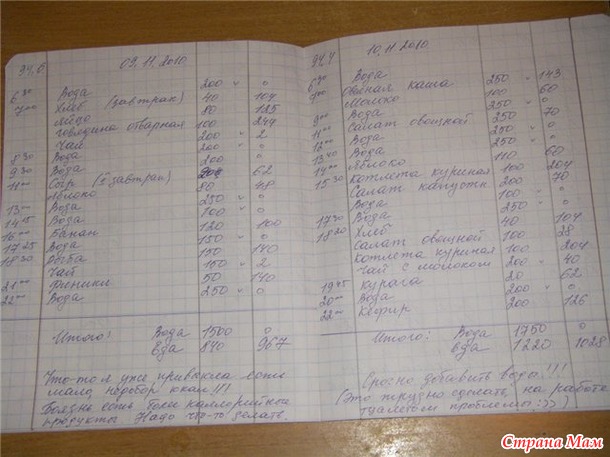 94,6 09.11.2010
6³⁰ Вода 200 " 0
7⁰⁰ Хлеб (завтрак) 40 104
Яйцо 80 125
Говядина отварная 100 249
Чай 200 " 2
8³⁰ Вода 200 " 0
9³⁰ Вода 200
11⁰⁰ Сыр (II завтрак) 62
Яблоко 80 48
13⁰⁰ Вода 250 " 0
14¹⁵ Вода 100 " 0
16⁰⁰ Банан 120 100
17²⁵ Вода 150 " 0
18³⁰ Рыба 150 140
Чай 150 " 2
21⁰⁰ Финики 50 140
22⁰⁰ Вода 250 " 0
Итого: Вода 1500 0
Еда 840 967
Что-то я уже привыкла есть
мало, недобор ккал!!!
Боязнь есть более каллорийные
продукты. Надо что-то делать.
94,4 10.11.2010
6³⁰ Вода
7⁰⁰ Овсяная каша 250 " 143
Молоко 100 60
9⁰⁰ Вода 250 " 0
11⁰⁰ Салат овощной 250 70
12⁰⁰ Вода 250 " 0
13⁴⁰ Вода 250 " 0
14⁰⁰ Яблоко 110 60
15³⁰ Котлета куриная 100 204
Салат капустн. 200 70
Вода 100 " 0
17³⁰ Вода 200 " 0
18²⁰ Хлеб 40 104
Салат овощной 100 28
Котлета куриная 100 204
Чай с молоком 200 " 40
19⁴⁵ Курага 20 62
20⁰⁰ Вода 200 " 0
22⁰⁰ Кефир 200 126
Итого: Вода 1750 0
Еда 1220 1028
Срочно добавить воды!!!
(Это трудно сделать, на работе
туалетом проблемы :)) )
Страна Мам